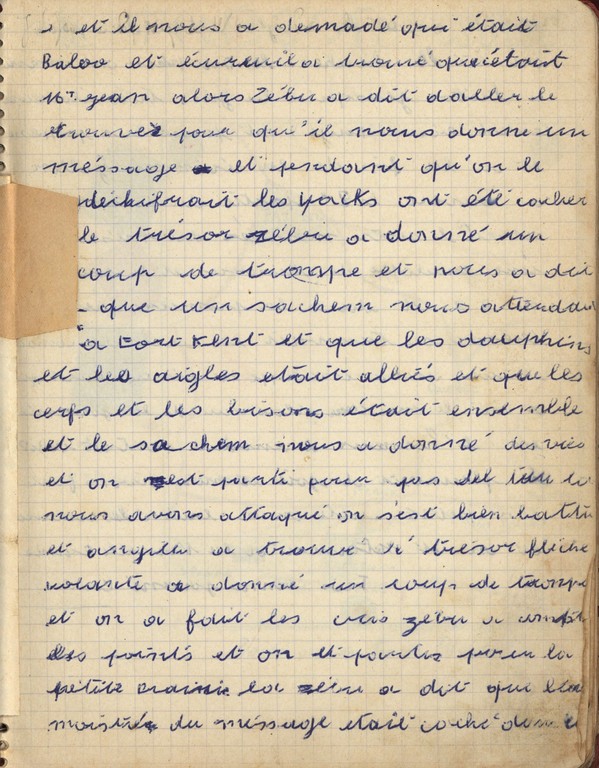 et il nous a demadé qui était
Baloo et écureuil a trouvé que c'étäit
Mr jean alors Zébu a dit daller le
trouvez pour qu'il nous donne un
méssage et pendant qu'on le
déchifrait les yacks ont été cacher
le trésor zébu a donné un
coup de trompe et nous a dit
que un sachem nous attendai
a Fort Kent et que les dauphins
et les aigles etait alliés et que les
cerfs et les bisons était ensemble
et le sachem nous a donné des vies
et on est parti pour pas del
nous avons attaqué on s'est bien battu
et a trouvé trésor flèche
volante a donné un coup de trompe
et on a fait les cris zébu a compt
les points et on et partis pour la
petite prairie la zébu a dit que la
moitiée du méssage etait caché dan